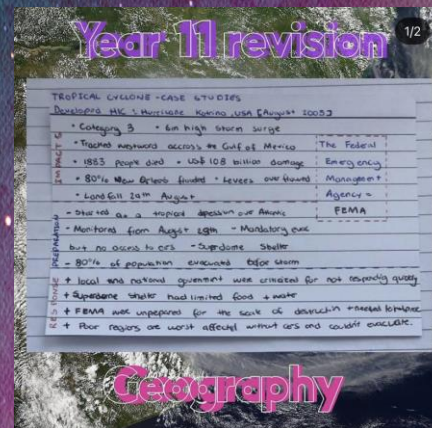 Year 11 revision
1/2
TROPICAL CYCLONE - CASE STUDIES
Developed HIC : Hurricane Katrina, USA [August 2005]
IMPACTS
• Category 3 • 6m high storm surge
• Tracked westward accross the Gulf of Mexico
• 1883 People died • US$ 108 billion damage
• 80% New Orleans flooded • Levees overflowed
• Landfall 29th August
The Federal
Emergency
Management
Agency =
FEMA
PREPAREDNESS
- Started as a tropical depression over Atlantic
- Monitored from August 28th - Mandatory evac
but no access to cars - Superdome Shelter
- 80% of population evacuated before storm
RESPONSE
+ local and national government were criticized for not responding quickly
+ Superdome shelter had limited food + water
+ FEMA was unprepared for the scale of destruction
+ Poor regions are worst affected without cars and couldn't evacuate.
Geography